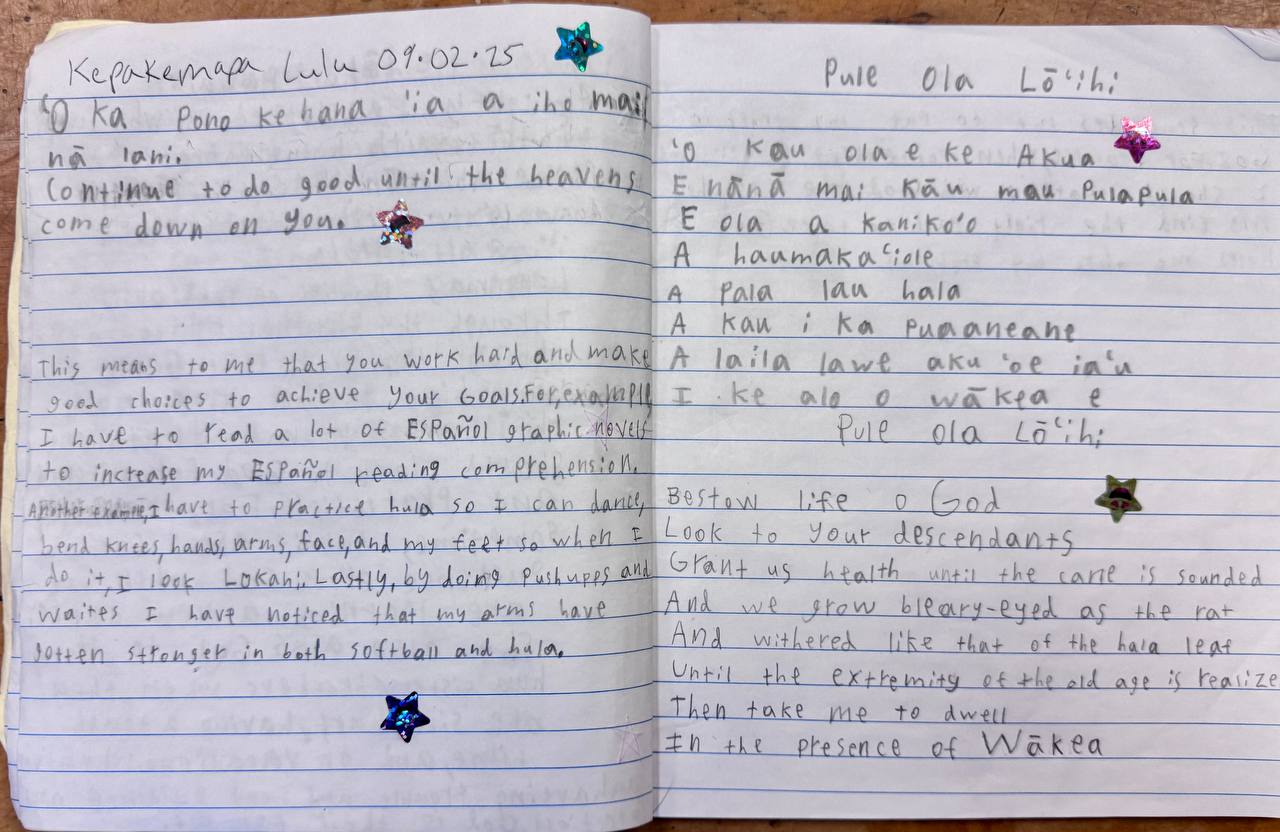 Kepakemapa Lulu 09.02.25
ʻO ka pono ke hana ʻia a iho mai
nā lani.
Continue to do good until the heavens
come down on you.
This means to me that you work hard and make
good choices to achieve your Goals. For, example
I have to read a lot of ESPañol graphic novels
to increase my ESPañol reading comprehension.
Another examme, I have to practice hula so I can dance,
bend knees, hands, arms, face, and my feet so when I
do it, I look Lokahi. Lastly, by doing pushupps and
waites I have noticed that my arms have
gotten stronger in both softball and hula.
Pule Ola Lōʻihi
ʻO kau ola e ke Akua
E nānā mai kāu mau pulapula
E ola a kanikoʻo
A haumakaʻiole
A pala lau hala
A kau i ka puaaneane
A laila lawe aku ʻoe iaʻu
I ke alo o wākea e
Pule ola Lōʻihi
Bestow life o God
Look to your descendants
Grant us health until the cane is sounded
And we grow bleary-eyed as the rat
And withered like that of the hala leaf
Until the extremity of the old age is realize
Then take me to dwell
In the presence of Wākea